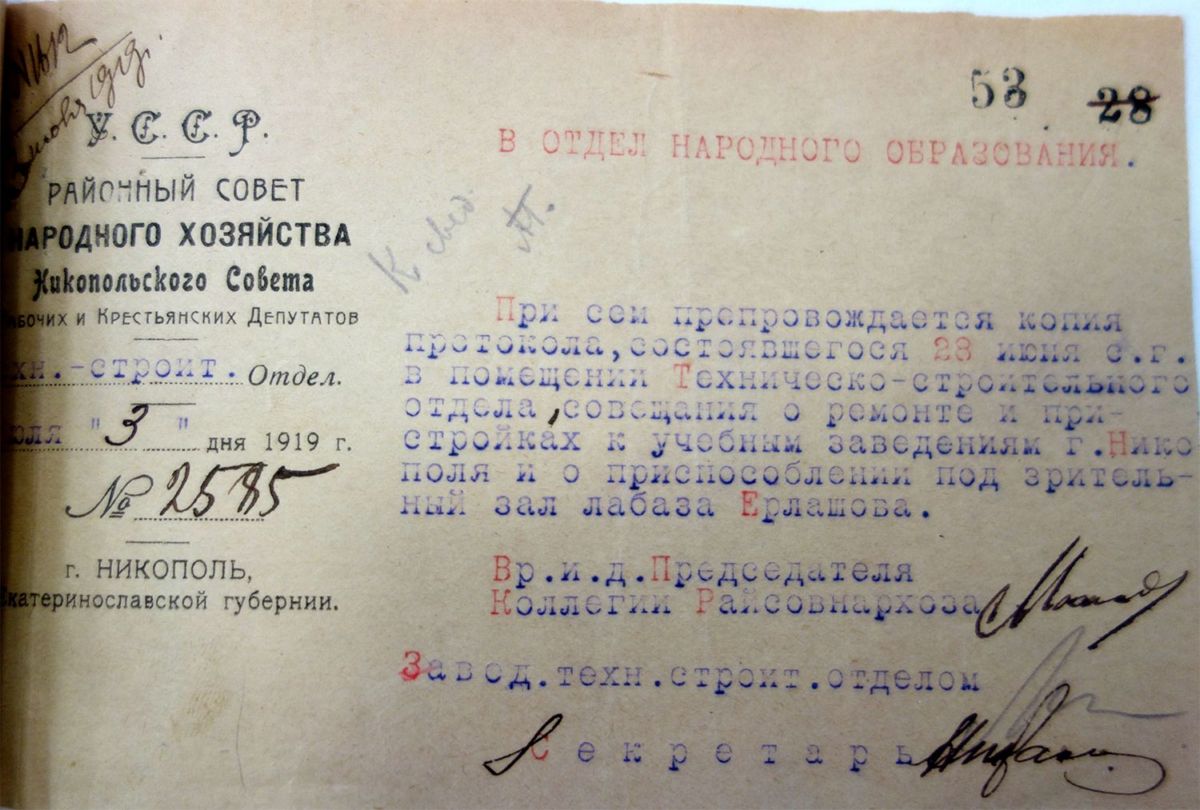 1919г.
У. С. С. Р.
РАЙОННЫЙ СОВЕТ
НАРОДНОГО ХОЗЯЙСТВА
Никопольского Совета
бочих и Крестьянских Депутатов
хн.-строит. Отдел.
юля "3" дня 1919 г.
№ 2585
г. НИКОПОЛЬ,
катеринославской губернии.
53 28
В ОТДЕЛ НАРОДНОГО ОБРАЗОВАНИЯ.
К свед.
При сем препровождается копия
протокола, состоявшегося 28 июня с.г.
в помещении Техническо-строительного
отдела, совещания о ремонте и при-
стройках к учебным заведениям г.Нико
поля и о приспособлении под зритель-
ный зал лабаза Ерлашова.
Вр.и.д.Председателя
Коллегии Райсовнархоза
Завод.техн.строит.отделом
Секретарь